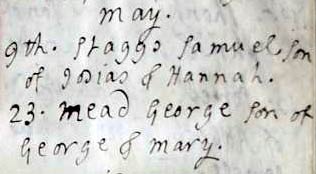 may.
9th. Staggs Samuel, son
of Josias & Hannah.
23. Mead George son of
George & mary.